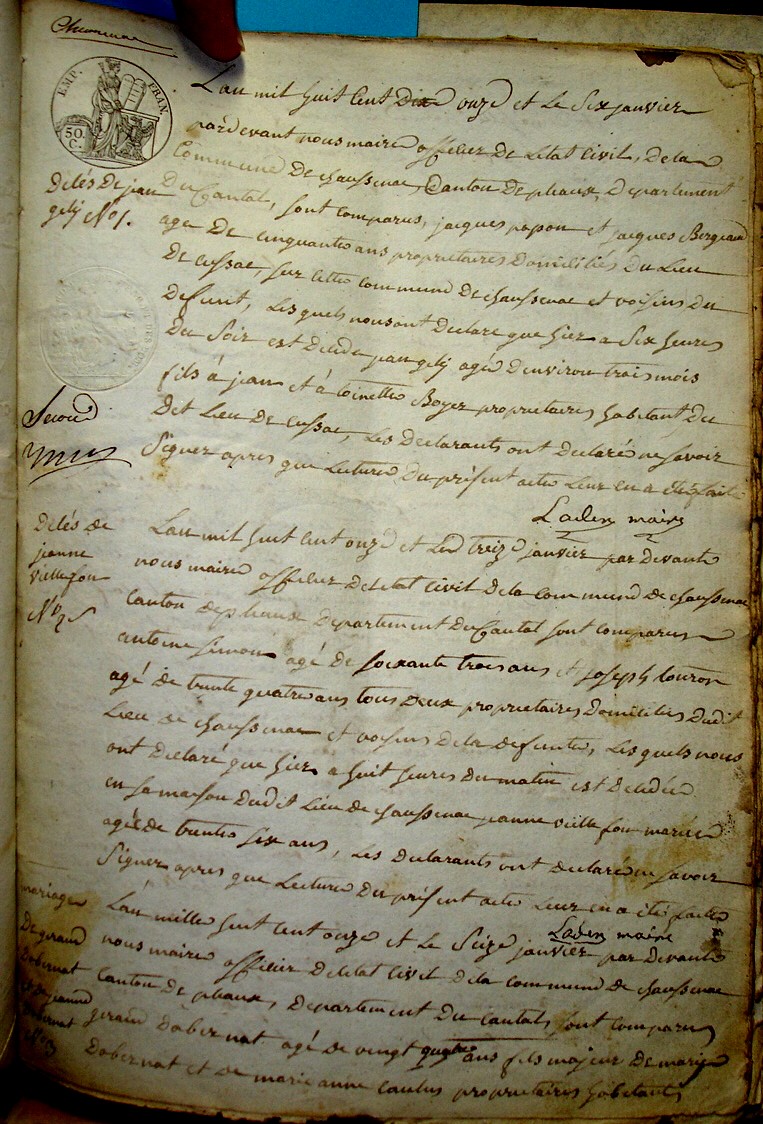 Chaussenac
EMP. FRAN.
50 C.
L'an mil huit cent onze et le six janvier
pardevant nous maire officier de letat civil, de la
Commune de chaussenac, Canton de pleaux, Departement
Decés de jean
gely No 1.
Du Cantal, sont comparus, jacques papon et jacques Bergeaud
age de cinquante ans proprietaires domiciliés du Lieu
De cussac, sur cette commune de chaussenac et voisins du
defunt, Lesquels nous ont declare que hier a six heures
Du soir est decede jean gely agé denviron trois mois
fils à jean et à toinette Boyer proprietaires habitant du
Dit Lieu de cussac, Les Declarants ont declaré ne savoir
Signer apres que Lecture du présent acte Leur en a été faite
Second
Laden maire
Decés de
jeanne
viellefon
No 2
Lan mil huit cent onze et le treize janvier par devant
nous maire officier deletat civil dela commune de chaussenac
Canton depleaux Departement Du Cantal sont comparus
antoine simon agé de soixante trois ans et joseph touron
agé de trente quatre ans tous deux proprietaires domiciliés dudit
Lieu de chaussenac et voisins dela defunte, Lesquels nous
ont declaré que hier a huit heures du matin est decedée
en sa maison dudit Lieu de chaussenac jeanne viellefon mariée
agée de trente six ans, Les declarants ont declaré ne savoir
Signer apres que Lecture du présent acte Leur en a été faite
Laden maire
mariage
De geraud
Dabernat
et de jeanne
No 3
L'an mille huit cent onze et Le Seize janvier par devant
nous maire officier deletat civil dela commune de chaussenac
Canton de pleaux, Departement du cantal, sont comparus
geraud Dabernat agé de vingt quatre ans fils majeur de
Dabernat et de marie anne caulus proprietaires habitants